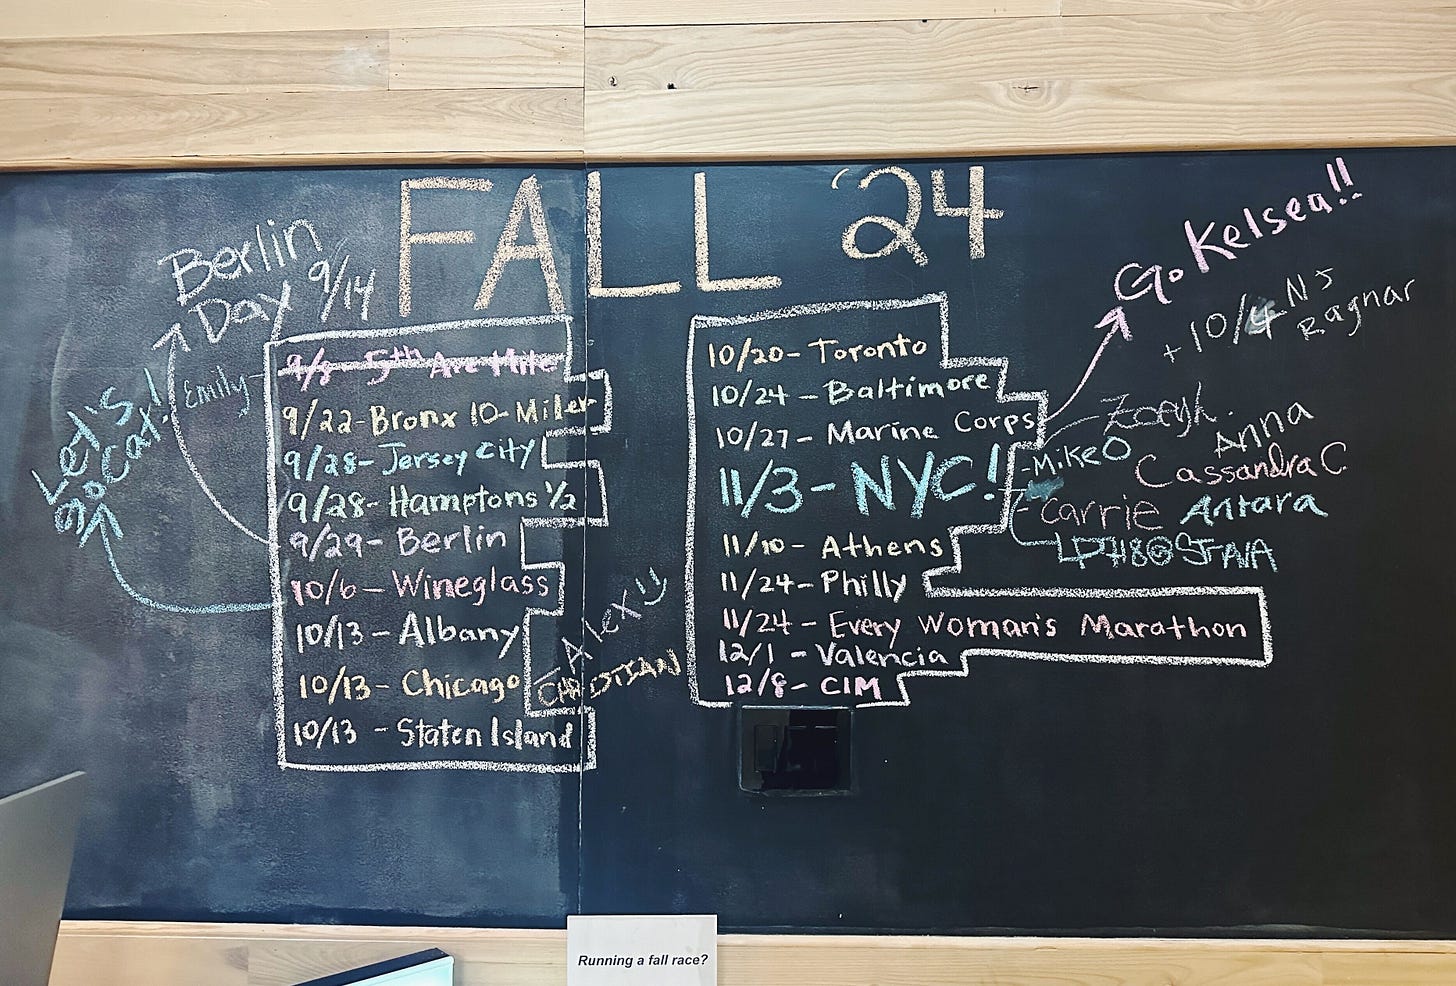 FALL '24
Berlin
Day 9/14
Emily
Let's
go Cat!
9/8- 5th Ave Mile
9/22-Bronx 10-Miler
9/28-Jersey City
9/28-Hamptons 1/2
9/29- Berlin
10/6- Wineglass
10/13- Albany
10/13- Chicago
10/13 - Staten Island
Alex
CHRISTIAN
10/20- Toronto
10/24 - Baltimore
10/27 - Marine Corps
11/3- NYC!
11/10- Athens
11/24-Philly
11/24- Every Woman's Marathon
12/1 - Valencia
12/8- CIM
Go Kelsea!!
+ 10/4 NJ
Ragnar
Anna
-MikeO
Cassandra C.
-Carrie
Antara
Running a fall race?